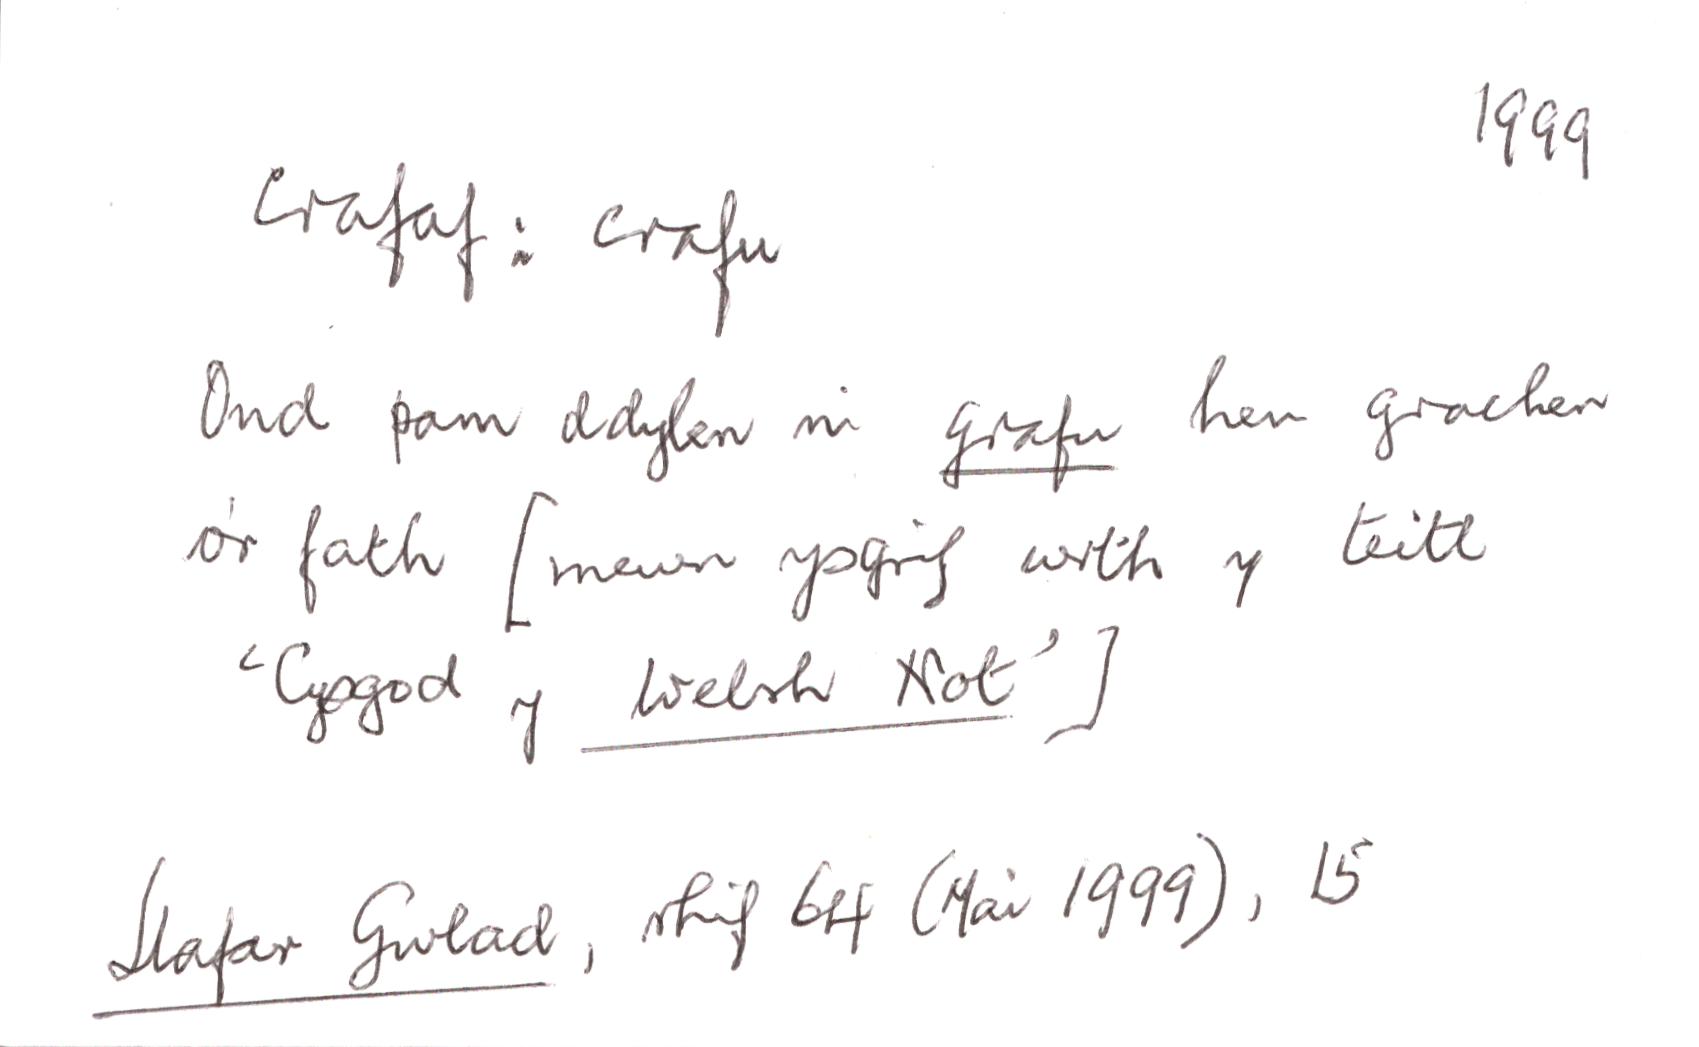 1999
Crafaf: crafu
Ond pam ddylen ni grafu hen grachen
o'r fath [mewn ysgrif wrth y teitl
'Cysgod y Welsh Not']
Llafar Gwlad, rhif 64 (Mai 1999), 15